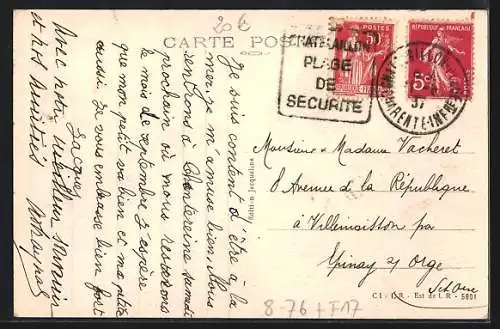 20 €
CARTE POSTALE
CHATELAILLON
PLAGE
DE
SECURITE
POSTES
50
REPUBLIQUE FRANÇAISE
5c
CHARENTE-INFRE
37
Je suis content d'être à la
mer, je m'amuse bien. Nous
rentrons à Chantereine samedi
prochain où nous resterons
le mois de septembre. J'espère
que mon petit va bien et ma petite
aussi. Je vous embrasse bien fort
Jacques
Avec nos meilleurs souvenirs
et nos amitiés
Monsieur & Madame Vacheret
8 Avenue de la République
à Villemoisson par
Epinay s/ Orge
S et Oise
8-76 + T17
C.I. - L.R. - Est de L.R. - 5601